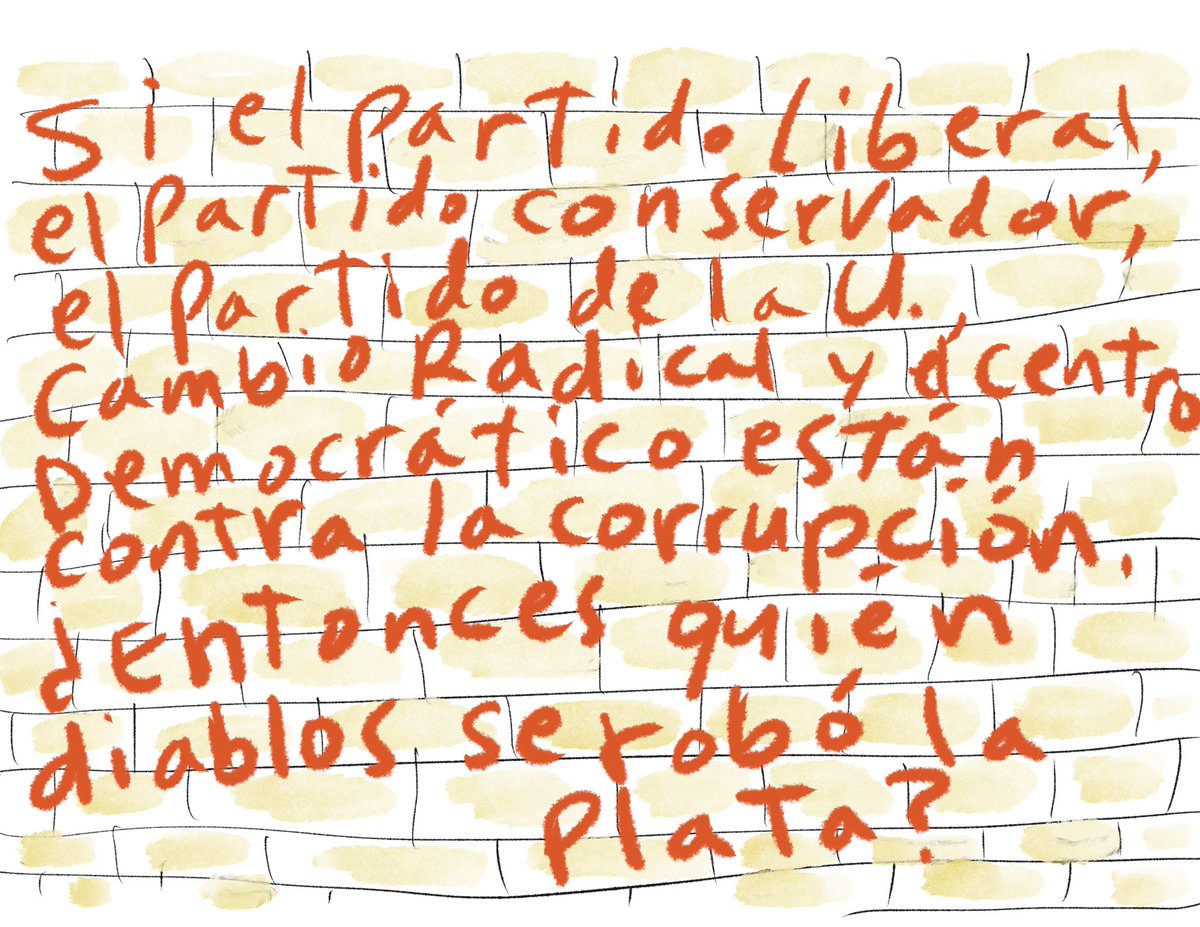 Si el partido Liberal,
el partido conservador,
el partido de la U.,
Cambio Radical y el Centro
Democrático están
contra la corrupción.
¿Entonces quién
diablos se robó la
plata?